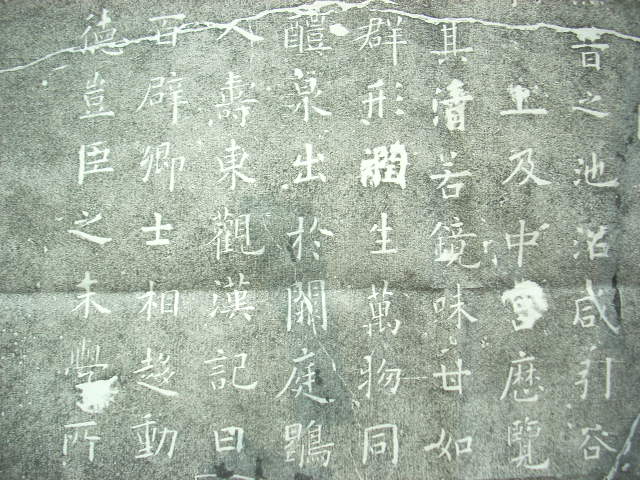 昔之池沼咸引谷
上及中宮歷覽
其清若鏡味甘如
群形潤生萬物同
醴泉出於闕庭鶡
人壽東觀漢記曰
百辟卿士相趍動
德豈臣之末學所